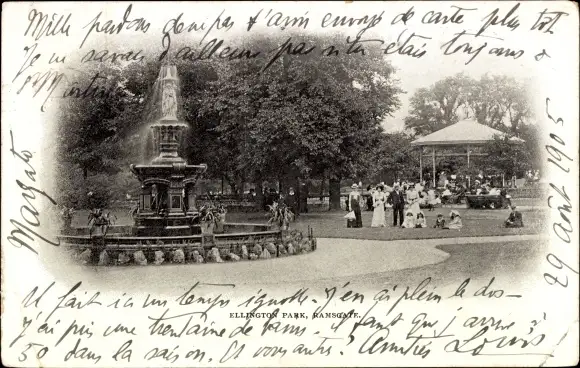 Mille pardons de ne pas t'avoir envoyé de carte plus tôt
Je ne savais d'ailleurs pas si tu étais toujours à
St Martin
Margate
29 Août 1905
ELLINGTON PARK, RAMSGATE.
Il fait ici un temps ignoble. J'en ai plein le dos
J'ai pris une trentaine de bains. Il faut que j'arrive à
50 dans la saison. Et vous autres? Amitiés Louis